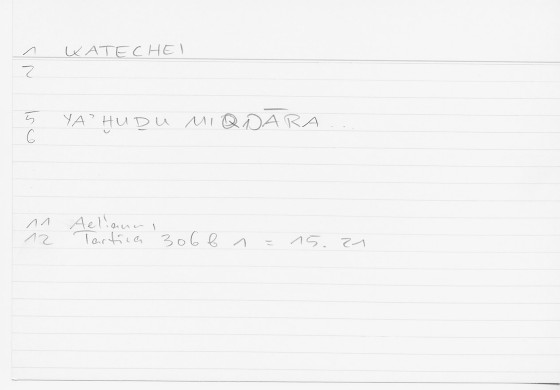 1 KATECHEI
2
5 YA'ḪUḎU MIQDĀRA ...
6
11 Aeliani
12 Tactica 306 b 1 = 15.21